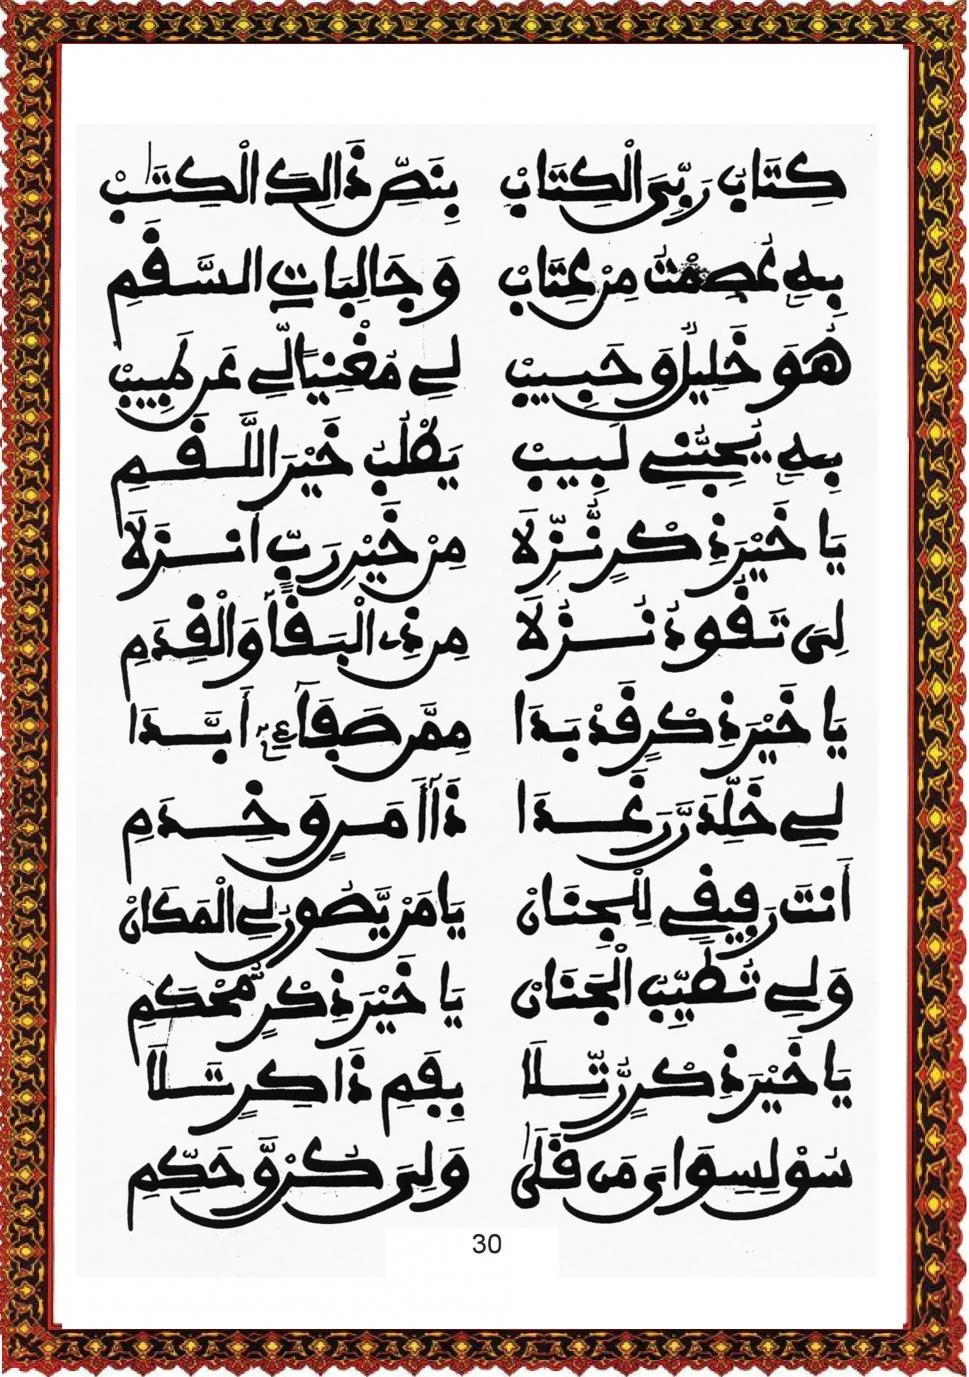 كِتَابُ رَبِّىَ الْكِتَابْ بِنَصِّ ذَالِكَ الْكِتَبْ
بِهِ عُصِمْتُ مِنْ عِتَابْ وَجَالِبَاتِ السَّقَمِ
هُوَ خَلِيلٌ وَحَبِيبْ لِے مُغْنِياً لِّے عَن طَبِيبْ
بِهِ يُحِبُّنِے لَبِيبْ يَطْلُبُ خَيْرَ اللَّقَمِ
يَا خَيْرَ ذِكْرٍ نُّزِّلَا مِنْ خَيْرِ رَبٍّ أَنزَلَا
لِىَ تَقُودُ نُزُلَا مِن ذِى الْبَقَآ وَالْقِدَمِ
يَا خَيْرَ ذِكْرٍ قَدْ بَدَا مِمَّن صَفَآ أَبَّدَا
لِے خَلِّدَ رَّغَدَا ذَآ أَمَرٍ وَخِدَمِ
أَنتَ رَفِيقِے لِلْجِنَانْ يَا مَنْ يَّصُونُ لِے الْمَكَانْ
وَلِے تُطَيِّبُ الْجَنَانْ يَا خَيْرَ ذِكْرٍ مُّحْكَمِ
يَا خَيْرَ ذِكْرٍ رُّتِّلَا بِفَمِ ذَاكِرٍ تَلَا
سُوْ لِسِوَاىَ مَن قَلَى وَلِىَ كُن وَّحَكِّمِ
30